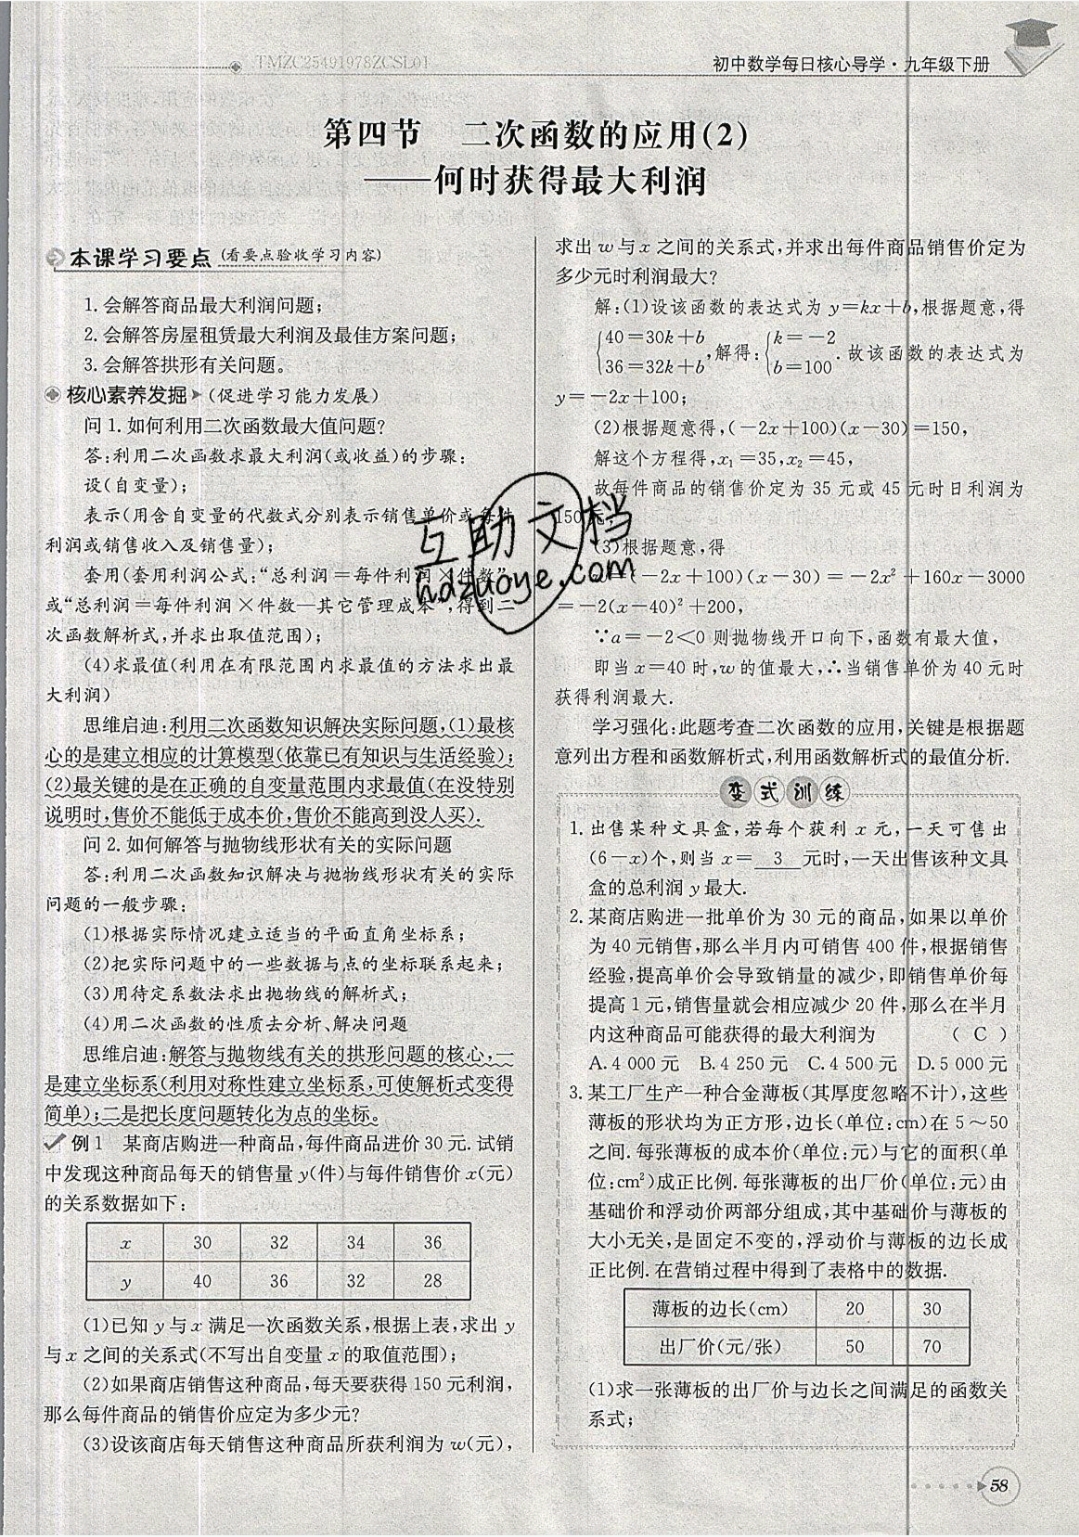 TMZC25491978ZCSL01
初中数学每日核心导学·九年级下册
第四节 二次函数的应用(2)
——何时获得最大利润
本课学习要点(看要点验收学习内容)
1.会解答商品最大利润问题;
2.会解答房屋租赁最大利润及最佳方案问题;
3.会解答拱形有关问题。
核心素养发掘(促进学习能力发展)
问1.如何利用二次函数最大值问题?
答:利用二次函数求最大利润(或收益)的步骤:
设(自变量);
表示(用含自变量的代数式分别表示销售单价或每件
利润或销售收入及销售量);
套用(套用利润公式:“总利润=每件利润×件数”
或“总利润=每件利润×件数—其它管理成本”,得到二
次函数解析式,并求出取值范围);
(4)求最值(利用在有限范围内求最值的方法求出最
大利润)
思维启迪:利用二次函数知识解决实际问题,(1)最核
心的是建立相应的计算模型(依靠已有知识与生活经验);
(2)最关键的是在正确的自变量范围内求最值(在没特别
说明时,售价不能低于成本价,售价不能高到没人买).
问2.如何解答与抛物线形状有关的实际问题
答:利用二次函数知识解决与抛物线形状有关的实际
问题的一般步骤:
(1)根据实际情况建立适当的平面直角坐标系;
(2)把实际问题中的一些数据与点的坐标联系起来;
(3)用待定系数法求出抛物线的解析式;
(4)用二次函数的性质去分析、解决问题
思维启迪:解答与抛物线有关的拱形问题的核心,一
是建立坐标系(利用对称性建立坐标系,可使解析式变得
简单);二是把长度问题转化为点的坐标。
例1 某商店购进一种商品,每件商品进价30元.试销
中发现这种商品每天的销售量y(件)与每件销售价x(元)
的关系数据如下:
x 30 32 34 36
y 40 36 32 28
(1)已知y与x满足一次函数关系,根据上表,求出y
与x之间的关系式(不写出自变量x的取值范围);
(2)如果商店销售这种商品,每天要获得150元利润,
那么每件商品的销售价应定为多少元?
(3)设该商店每天销售这种商品所获利润为w(元),
求出w与x之间的关系式,并求出每件商品销售价定为
多少元时利润最大?
解:(1)设该函数的表达式为y=kx+b,根据题意,得
{40=30k+b 36=32k+b,解得:{k=-2 b=100.故该函数的表达式为
y=-2x+100;
(2)根据题意得,(-2x+100)(x-30)=150,
解这个方程得,x₁=35,x₂=45,
故每件商品的销售价定为35元或45元时日利润为
150元;
(3)根据题意,得
w=(-2x+100)(x-30)=-2x²+160x-3000
=-2(x-40)²+200,
∵a=-2<0则抛物线开口向下,函数有最大值,
即当x=40时,w的值最大,∴当销售单价为40元时
获得利润最大.
学习强化:此题考查二次函数的应用,关键是根据题
意列出方程和函数解析式,利用函数解析式的最值分析.
变式训练
1.出售某种文具盒,若每个获利x元,一天可售出
(6-x)个,则当x=3元时,一天出售该种文具
盒的总利润y最大.
2.某商店购进一批单价为30元的商品,如果以单价
为40元销售,那么半月内可销售400件,根据销售
经验,提高单价会导致销量的减少,即销售单价每
提高1元,销售量就会相应减少20件,那么在半月
内这种商品可能获得的最大利润为 (C)
A.4 000元 B.4 250元 C.4 500元 D.5 000元
3.某工厂生产一种合金薄板(其厚度忽略不计),这些
薄板的形状均为正方形,边长(单位:cm)在5~50
之间.每张薄板的成本价(单位:元)与它的面积(单
位:cm²)成正比例.每张薄板的出厂价(单位:元)由
基础价和浮动价两部分组成,其中基础价与薄板的
大小无关,是固定不变的,浮动价与薄板的边长成
正比例.在营销过程中得到了表格中的数据.
薄板的边长(cm) 20 30
出厂价(元/张) 50 70
(1)求一张薄板的出厂价与边长之间满足的函数关
系式;
58
互助文档
hdzuoye.com